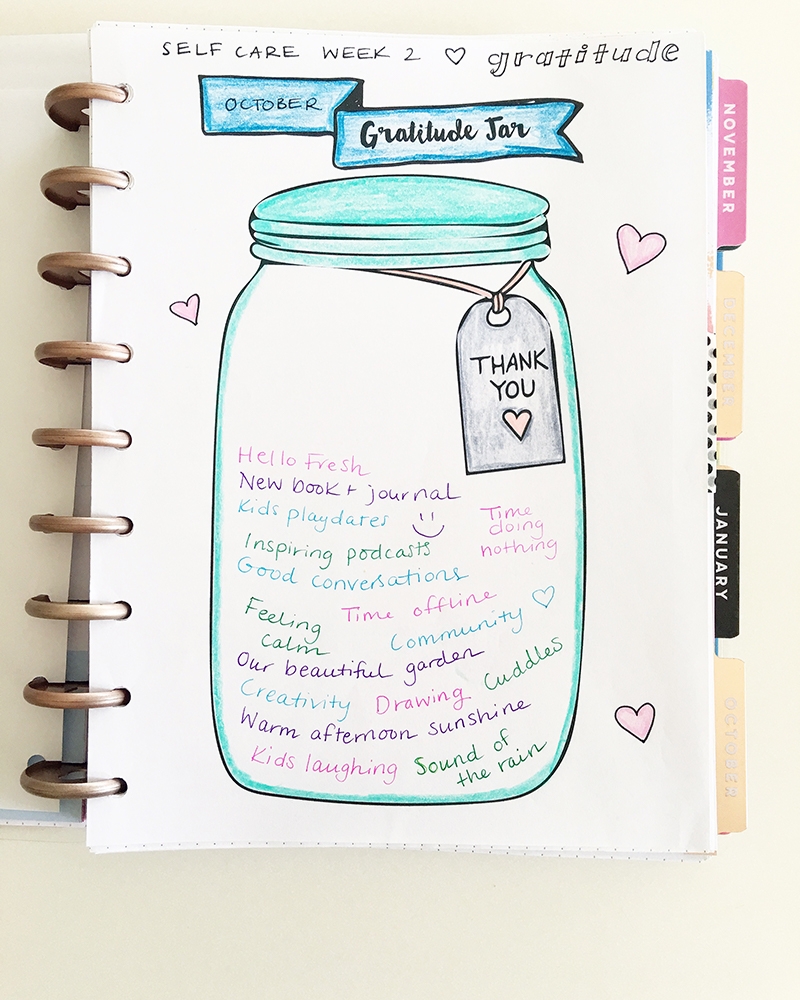 SELF CARE WEEK 2 ♡ gratitude
OCTOBER
Gratitude Jar
THANK
YOU
Hello Fresh
New book + journal
Kids playdates
Time
doing
nothing
Inspiring podcasts
Good conversations
Feeling
calm
Time offline
Community ♡
Our beautiful garden
Cuddles
Creativity
Drawing
Warm afternoon sunshine
Kids laughing
Sound of
the rain
NOVEMBER
DECEMBER
JANUARY
OCTOBER